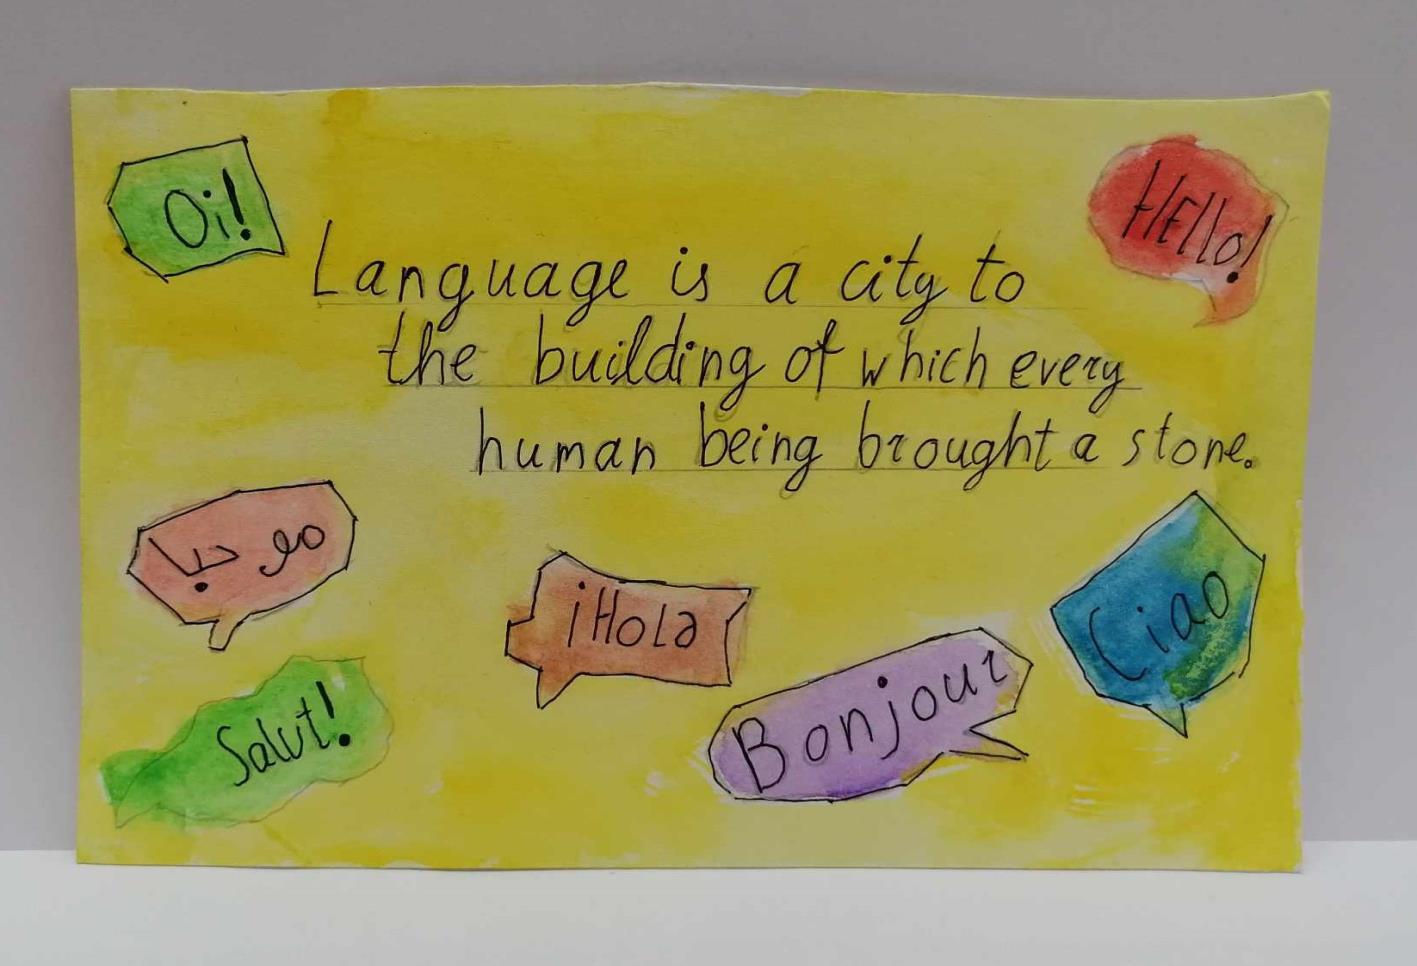 Oi!
Hello!
Language is a city to
the building of which every
human being brought a stone.
مرحبا
¡Hola
Ciao
Salut!
Bonjour